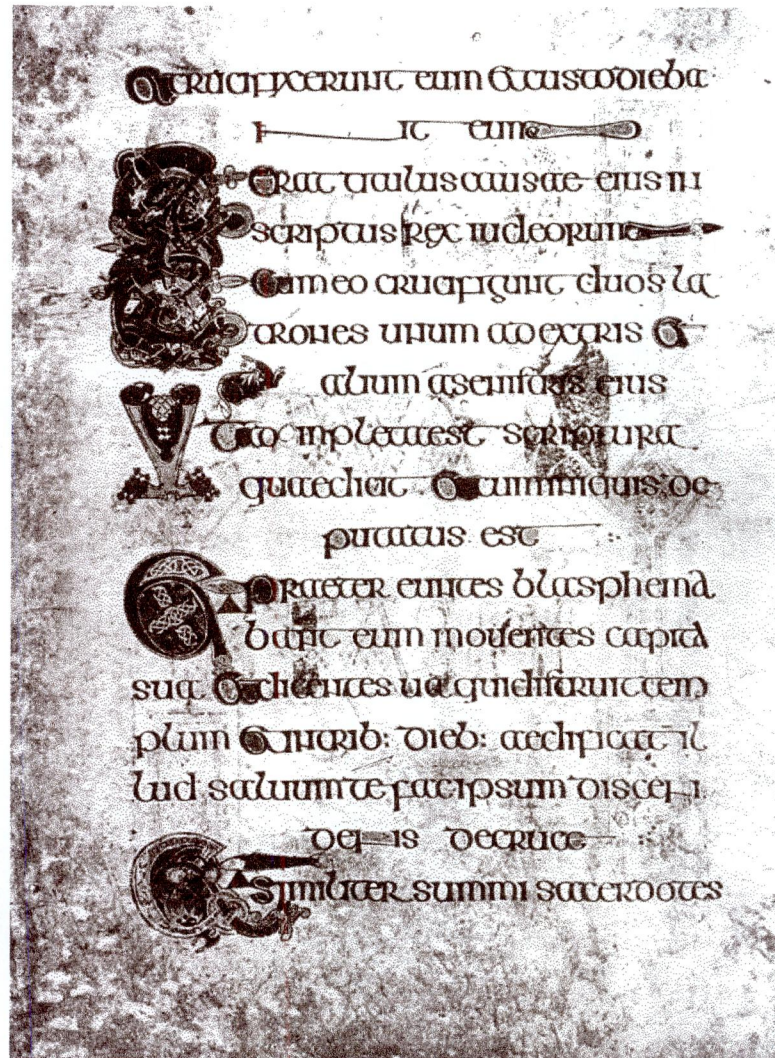 et crucifixerunt eum et custodieba
nt eum
Et erat titulus causae eius in
scriptus rex iudeorum
Et cum eo crucifigunt duos la
trones unum a dextris et
alium a senistris eius
Et adinpleta est scriptura
quae dicit et cum iniquis de
putatus est
Et praetereuntes blasphema
bant eum moventes capita
sua et dicentes va qui distruit tem
plum et in trib: dieb: aedificat il
lud salvum te fac ipsum discen
dens de cruce
Similiter summi sacerdotes